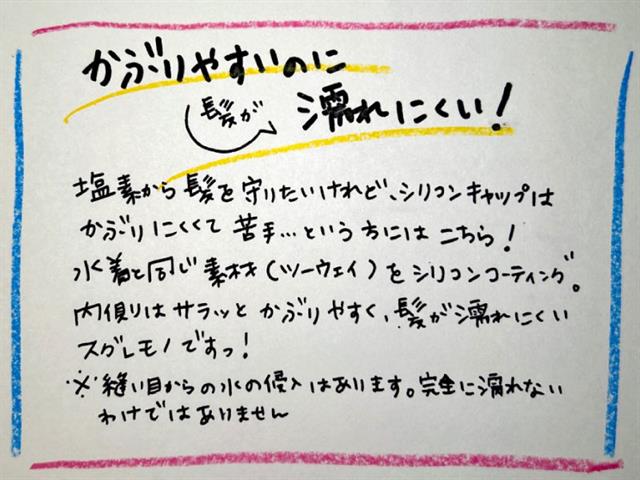 かぶりやすいのに
髪が
濡れにくい!
塩素から髪を守りたいけれど、シリコンキャップは
かぶりにくくて苦手…という方にはこちら!
水着と同じ素材(ツーウェイ)をシリコンコーティング。
内側はサラッとかぶりやすく、髪が濡れにくい
スグレモノですっ!
※縫い目からの水の侵入はあります。完全に濡れない
わけではありません